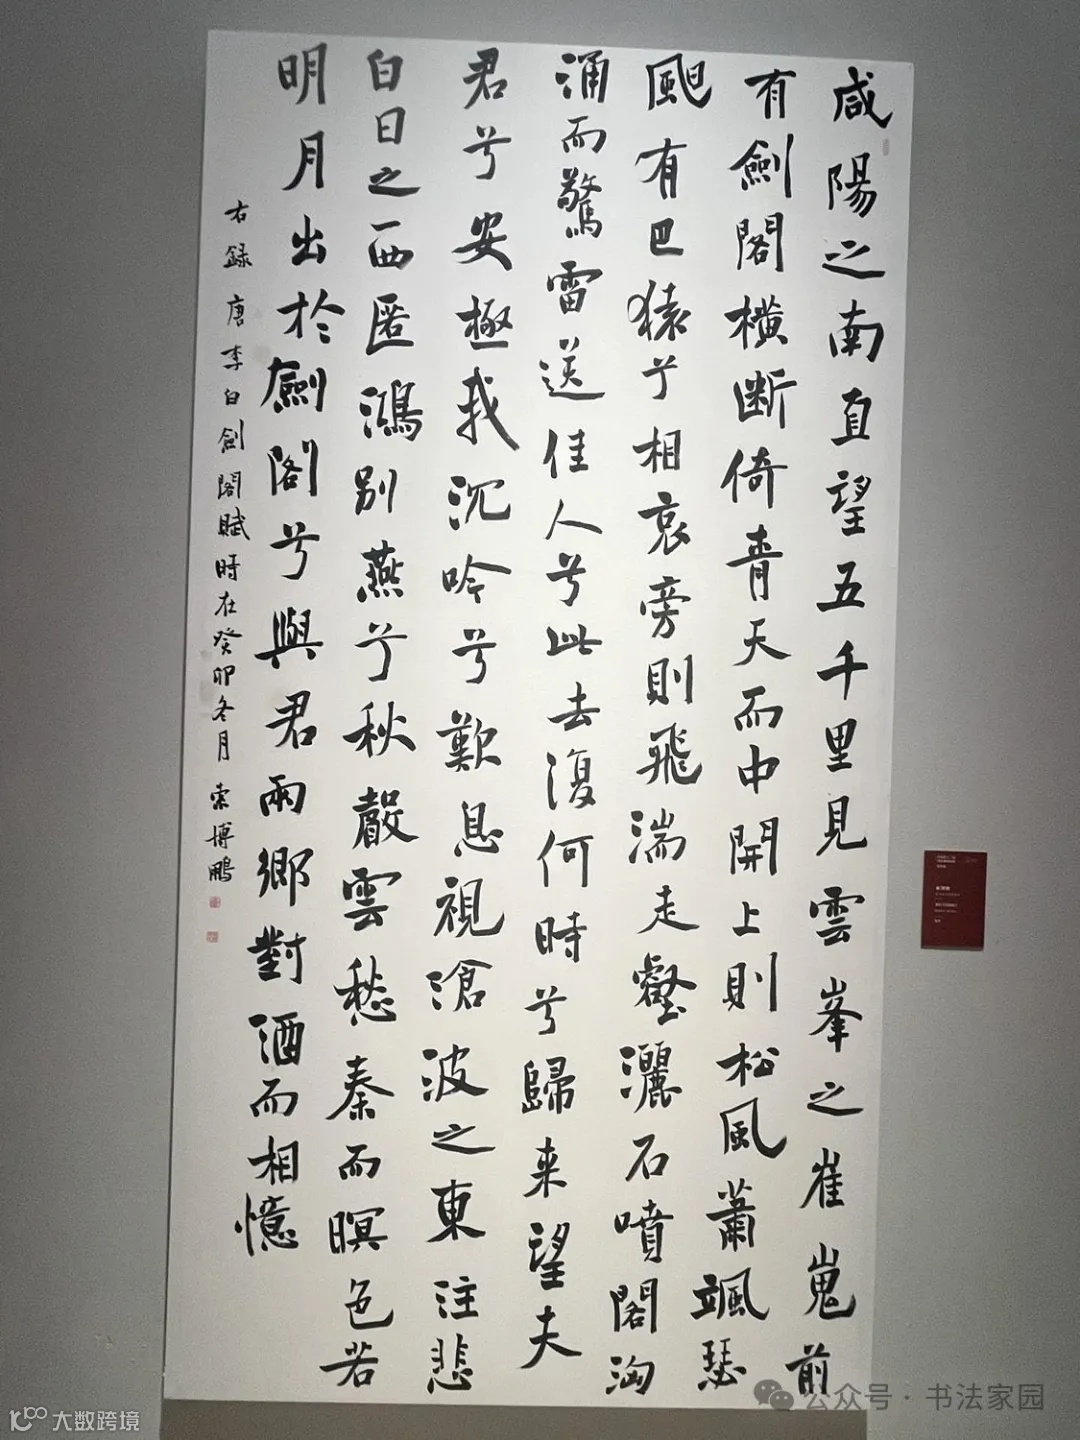 咸陽之南直望五千里見雲峯之崔嵬前
有劍閣橫斷倚青天而中開上則松風蕭颯瑟
颶有巴猿兮相哀旁則飛湍走壑灑石噴閣洶
涌而驚雷送佳人兮此去復何時兮歸来望夫
君兮安極我沉吟兮歎息視滄波之東注悲
白日之西匿鴻別燕兮秋聲雲愁秦而暝色若
明月出於劍閣兮與君兩鄉對酒而相憶
右録唐李白劍閣賦時在癸卯冬月索博鵬
公众号·书法家园
大数跨境